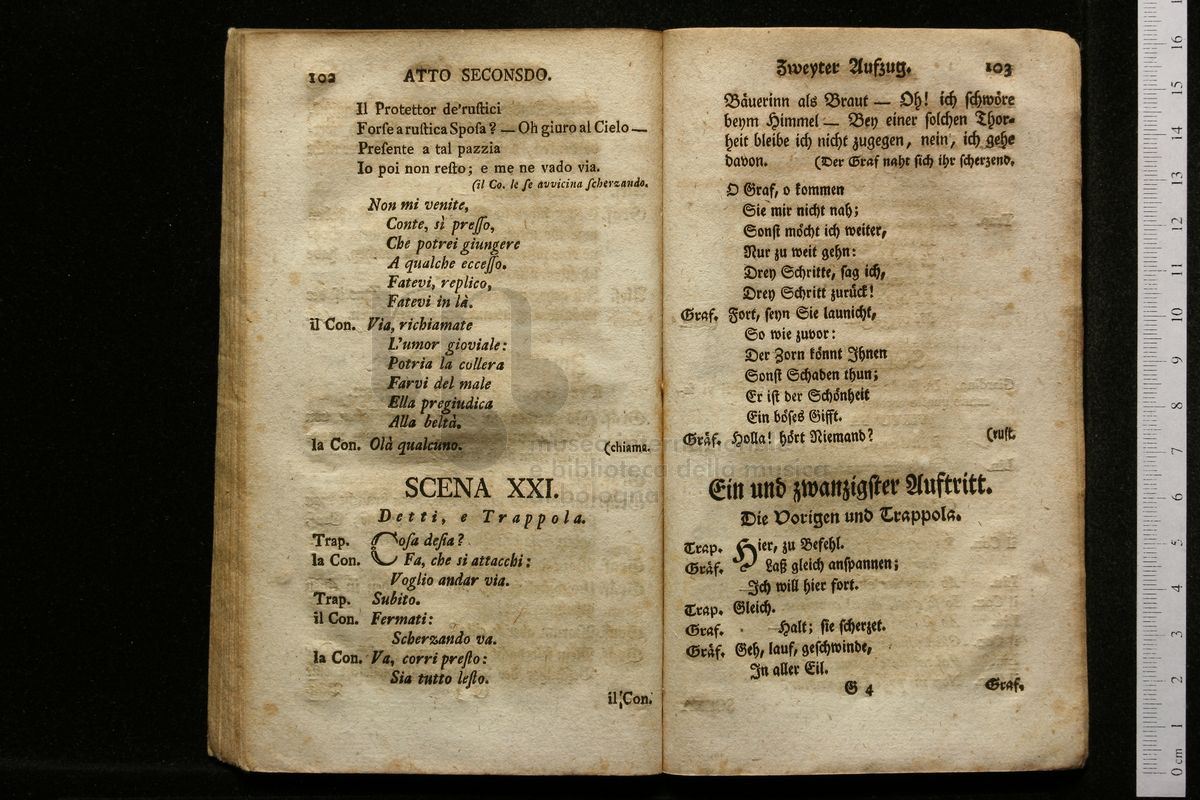 102 ATTO SECONSDO.
Il Protettor de'ruſtici
Forſe a ruſtica Spoſa? — Oh giuro al Cielo —
Preſente a tal pazzia
Io poi non reſto; e me ne vado via.
(il Co. le ſe avvicina ſcherzando.
Non mi venite,
Conte, sì preſſo,
Che potrei giungere
A qualche ecceſſo.
Fatevi, replico,
Fatevi in là.
il Con. Via, richiamate
L'umor gioviale:
Potria la collera
Farvi del male
Ella pregiudica
Alla beltà.
la Con. Olà qualcuno. (chiama.
SCENA XXI.
Detti, e Trappola.
Trap. Coſa deſia?
la Con. Fa, che si attacchi:
Voglio andar via.
Trap. Subito.
il Con. Fermati:
Scherzando va.
la Con. Va, corri preſto:
Sia tutto leſto.
il Con.
Zweyter Aufzug. 103
Bäuerinn als Braut — Oh! ich ſchwöre
beym Himmel — Bey einer ſolchen Thor-
heit bleibe ich nicht zugegen, nein, ich gehe
davon. (Der Graf naht ſich ihr ſcherzend.
O Graf, o kommen
Sie mir nicht nah;
Sonſt möcht ich weiter,
Nur zu weit gehn:
Drey Schritte, ſag ich,
Drey Schritt zurück!
Graf. Fort, ſeyn Sie launicht,
So wie zuvor:
Der Zorn könnt Ihnen
Sonſt Schaden thun;
Er iſt der Schönheit
Ein böſes Gifft.
Gräf. Holla! hört Niemand? (ruft.
Ein und zwanzigſter Auftritt.
Die Vorigen und Trappola.
Trap. Hier, zu Befehl.
Gräf. Laß gleich anſpannen;
Ich will hier fort.
Trap. Gleich.
Graf. Halt; ſie ſcherzet.
Gräf. Geh, lauf, geſchwinde,
In aller Eil.
G 4 Graf.
museo internazionale
e biblioteca della musica
bologna
0 cm 1 2 3 4 5 6 7 8 9 10 11 12 13 14 15 16